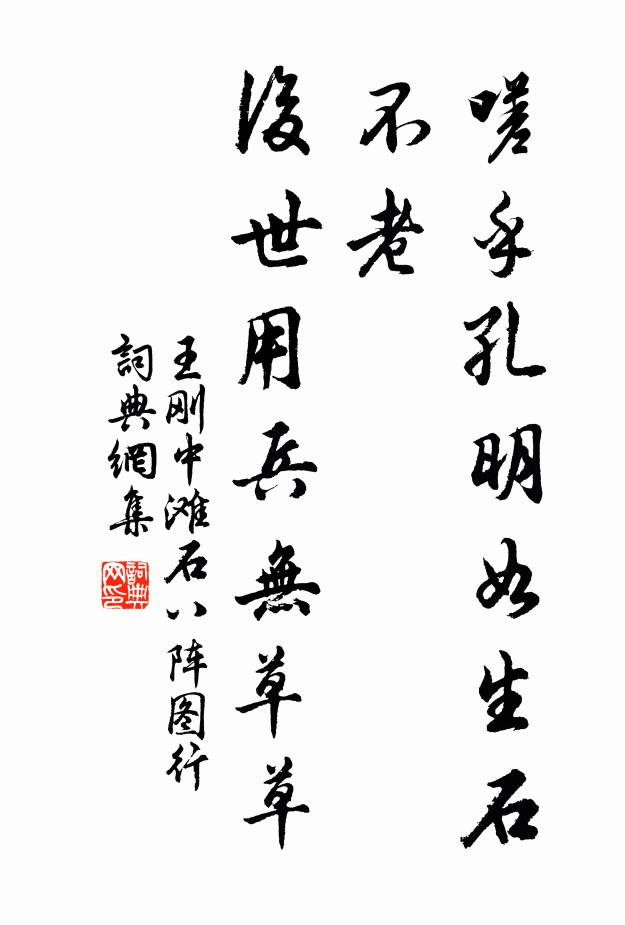 嗟乎孔明如生石
不老
後世用兵無草草
王刚中滩石八阵图行
詞典網集
詞典网印